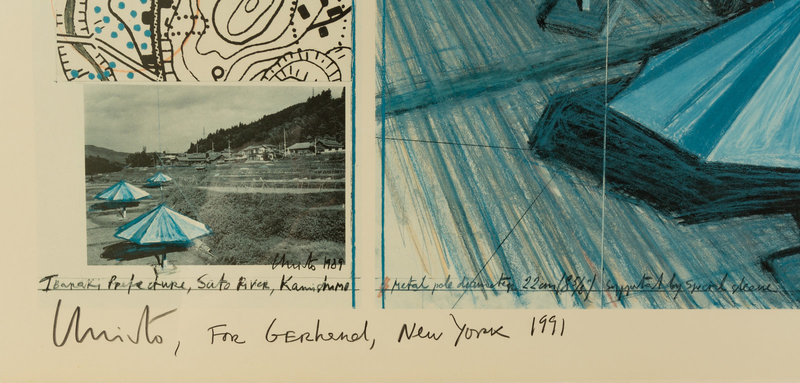 Christo 1989
Ibaraki Prefecture, Sato River, Kamishima
Metal pole diameter 22cm (8 5/8") supported by special sleeve
Christo, For Gerhard, New York 1991